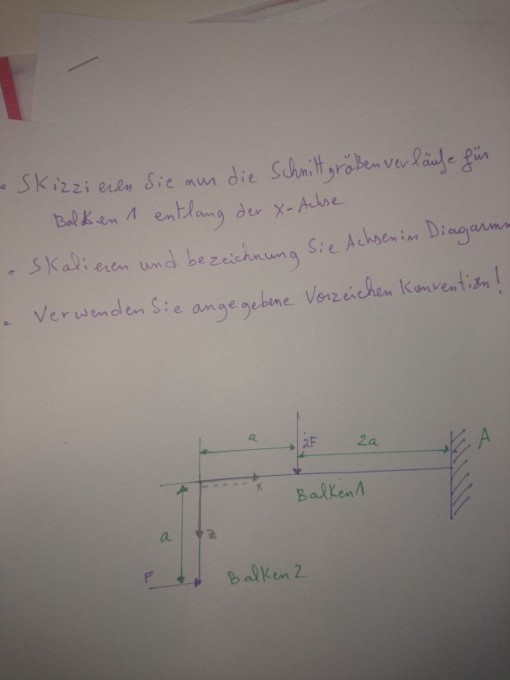 • Skizzieren Sie nun die Schnittgrößenverläufe für
Balken 1 entlang der x-Achse
• Skalieren und bezeichnung Sie Achsen im Diagarmm
• Verwenden Sie angegebene Vorzeichen Konvention!
a
2F
2a
A
x
Balken 1
a
z
F
Balken 2